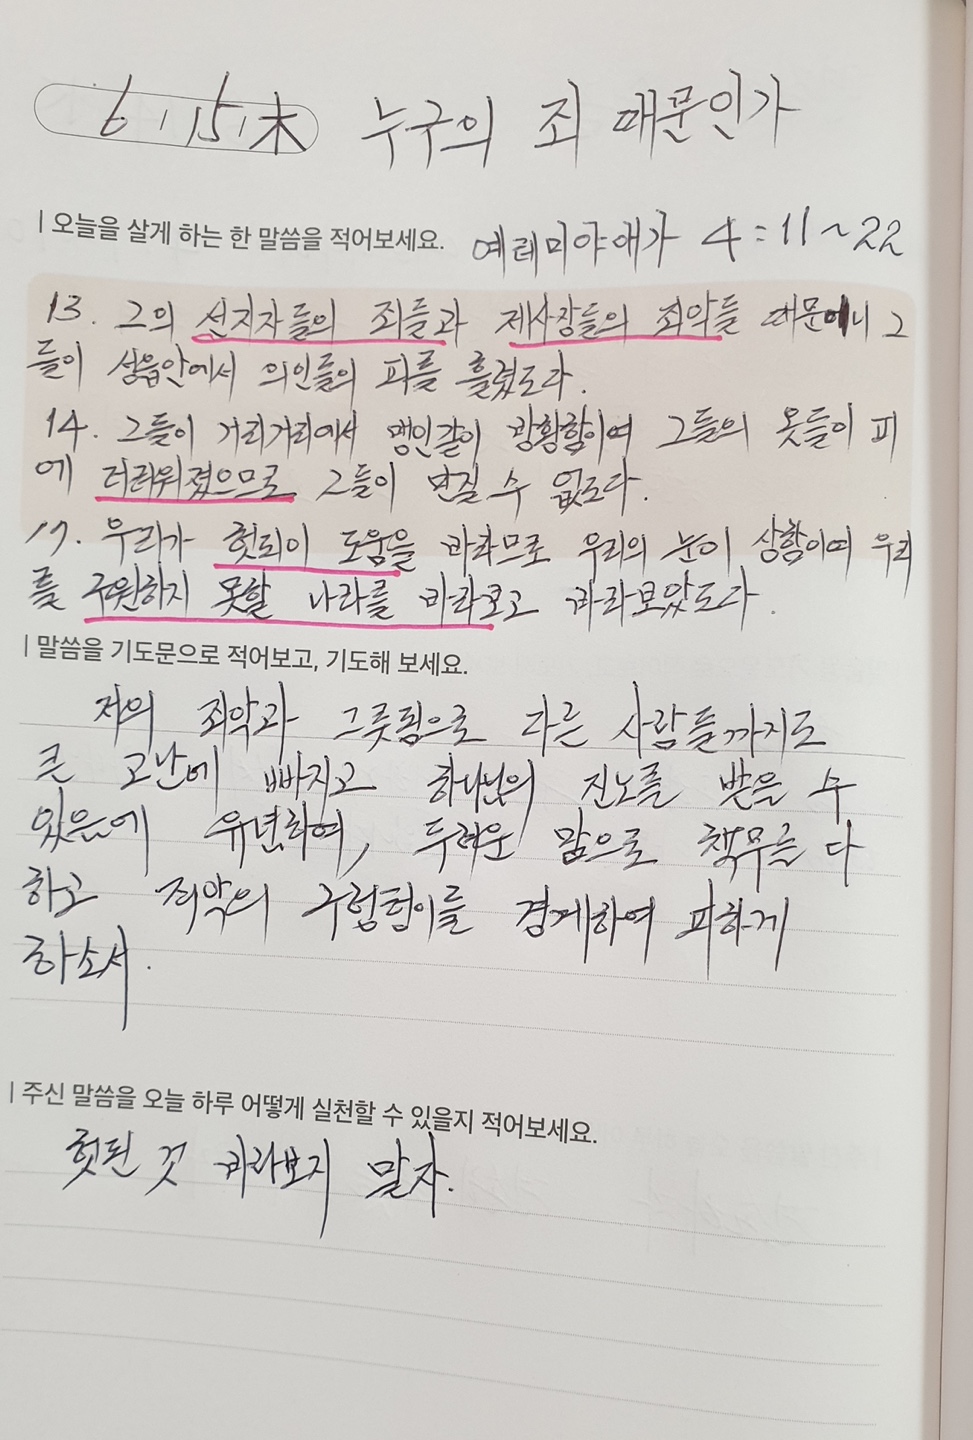 6 / 15 / 木 누구의 죄 때문인가
| 오늘을 살게 하는 한 말씀을 적어보세요. 예레미야애가 4 : 11 ~ 22
13. 그의 선지자들의 죄들과 제사장들의 죄악들 때문이니 그
들이 성읍안에서 의인들의 피를 흘렸도다.
14. 그들이 거리거리에서 맹인같이 방황함이여 그들의 옷들이 피
에 더러워졌으므로 그들이 만질 수 없도다.
17. 우리가 헛되이 도움을 바라므로 우리의 눈이 상함이여 우리
를 구원하지 못할 나라를 바라보고 바라보았도다.
| 말씀을 기도문으로 적어보고, 기도해 보세요.
저의 죄악과 그릇됨으로 다른 사람들까지도
큰 고난에 빠지고 하나님의 진노를 받을 수
있음에 유념하여, 두려운 맘으로 책무를 다
하고 죄악의 구렁텅이를 경계하여 피하게
하소서.
| 주신 말씀을 오늘 하루 어떻게 실천할 수 있을지 적어보세요.
헛된 것 바라보지 말자.